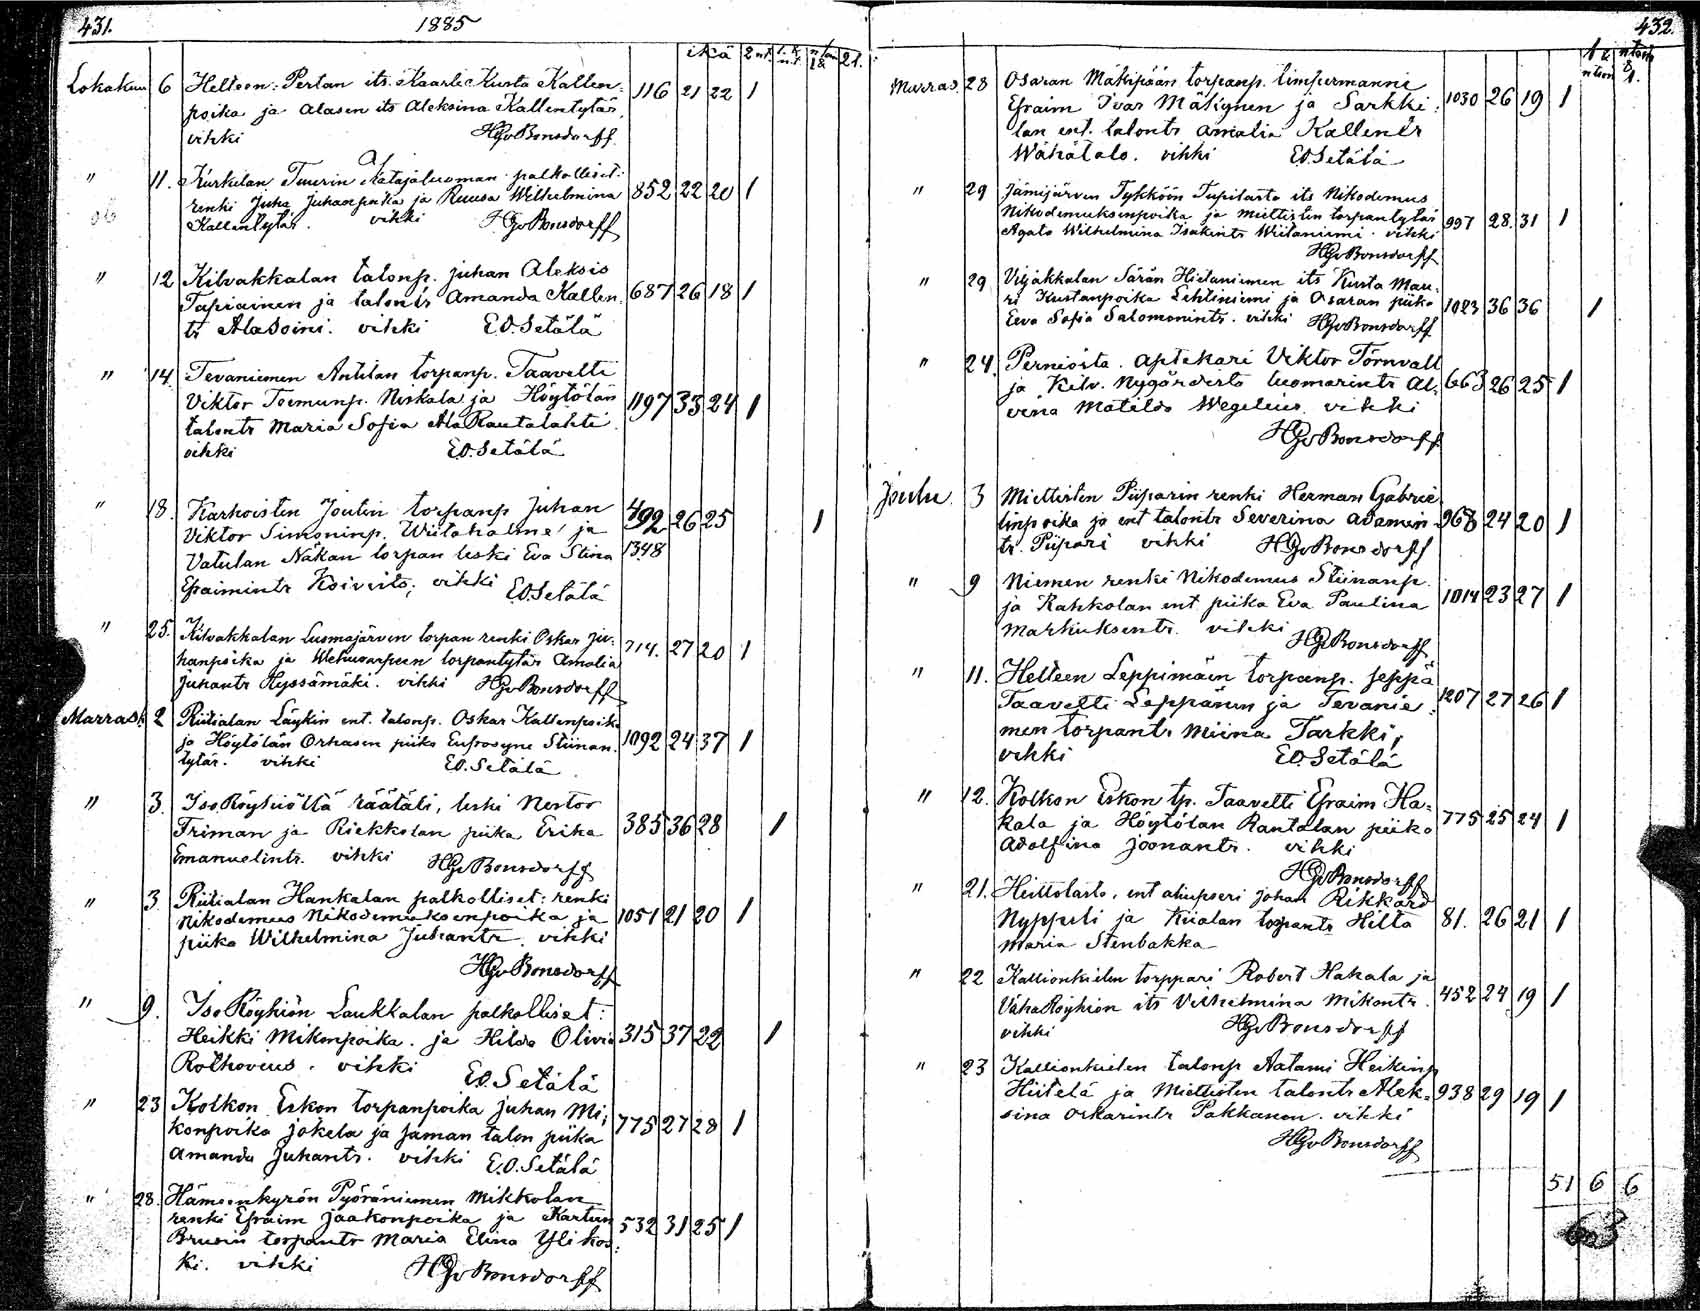 431. 1885
ikä 2 nt. l. k. nt. ntan 18 21.
Lokakuu 6 Helteen: Pertan its. Kaarle Kusta Kallen- 116 21 22 1
poika ja Alasen its Aleksina Kallentytär,
vihki HGvBonsdorff
" 11. Kurkelan Tuurin Katajaluoman palkolliset: 852 22 20 1
renki Juha Juhanpoika ja Ruusa Wilhelmina
Kallentytär. vihki HGvBonsdorff
" 12 Kilvakkalan talonp. Juhan Aleksis 687 26 18 1
Tapiainen ja talontr Amanda Kallen-
tr AlaSoini. vihki E.O.Setälä
" 14. Tevaniemen Anttilan torpanp. Taavetti
Viktor Teemunp. Niskala ja Höytölän 1197 33 24 1
talontr Maria Sofia AlaRautalahti
vihki E.O.Setälä
" 18. Karhoisten Joutin torpanp Juhan 492 26 25 1
Viktor Simoninp. Wiitahalme ja
Vatulan Näkan torpan leski Eva Stina 1348
Efraimintr Koivisto; vihki E.O.Setälä
" 25. Kilvakkalan Luomajärven torpan renki Oskar Ju- 714. 27 20 1
hanpoika ja Wehuvarpeen torpantytär Amalia
Juhantr Hyssämäki. vihki HGvBonsdorff
Marrask. 2 Riitialan Läykin ent. talonp. Oskar Kallenpoika
ja Höytölän Orhasen piika Eufrosyne Stiinan- 1092 24 37 1
tytär. vihki E.O.Setälä
" 3. IsoRöyhiöltä räätäli, leski Nestor
Friman ja Riekkolan piika Erika 385 36 28 1
Emanuelintr. vihki HGvBonsdorff
" 3. Riitialan Hankalan palkolliset: renki
Nikodemus Nikodemuksenpoika ja 1051 21 20 1
piika Wilhelmina Juhantr. vihki
HGvBonsdorff
" 9. IsoRöyhiön Laukkalan palkolliset:
Heikki Mikonpoika. ja Hilda Olivia 315 37 22 1
Rothovius. vihki E.O.Setälä
" 23 Kolkon Eskon torpanpoika Juhan Mi-
konpoika Jokela ja Jaman talon piika 775 27 28 1
Amanda Juhantr. vihki E.O.Setälä
" 28. Hämeenkyrön Pyöräniemen Mikkolan
renki Efraim Jaakonpoika ja Karttun 532 31 25 1
Bruusin torpantr Maria Elina Ylikos-
ki. vihki HGvBonsdorff
432.
Marras. 28 Osaran Mäkipään torpanp. timpermanni
Efraim Ivar Mäkynen ja Sarkki- 1030 26 19 1
lan ent. talontr Amalia Kallentr
Wähätalo. vihki E.O.Setälä
" 29 Jämijärven Tykköön Tupilasta its Nikodemus
Nikodemuksenpoika ja Miettisten torpantytär 997 28. 31 1
Agata Wilhelmina Isakintr Wiitaniemi. vihki
HGvBonsdorff
" 29 Viljakkalan Särän Hietaniemen its Kusta Mau-
ri Kustanpoika Lehtiniemi ja Osaran piika 1023 36 36 1
Eeva Sofia Salomonintr. vihki HGvBonsdorff
" 24. Perniöstä. aptekari Viktor Törnvall
ja Kilv. Nygårdista luomarintr Al- 663 26 25 1
vina Matilda Wegelius. vihki
HGvBonsdorff
Joulu. 3 Miettisten Piiparin renki Herman Gabrie-
linpoika ja ent talontr Severina Adamin- 968 24 20 1
tr. Piipari vihki HGvBonsdorff
" 9 Niemen renki Nikodemus Stiinanp.
ja Rahkolan ent piika Eva Paulina 1014 23 27 1
Markuksentr. vihki HGvBonsdorff
" 11. Helteen Leppimäen torpanp. seppä
Taavetti Leppänen ja Tevanie- 1207 27 26 1
men torpantr Miina Tarkki,
vihki E.O.Setälä
" 12. Kolkon Eskon tp. Taavetti Efraim Ha-
kala ja Höytölän Rantalan piika 775 25 24 1
Adolfina Joonantr. vihki
HGvBonsdorff
" 21. Heittolasta, ent aliupseri Johan Rikkard
Nyppeli ja Kiialan torpantr Hilta 81. 26 21 1
Maria Stenbakka
" 22 Kallionkielen torppari Robert Hakala ja
VähäRöyhiön its Vilhelmina Mikontr. 452 24 19 1
vihki HGvBonsdorff
" 23 Kallionkielen talonp Aatami Heikinp
Hiitelä ja Miettisten talontr Alek- 938 29 19 1
sina Oskarintr Pakkanen. vihki
HGvBonsdorff
51 6 6
63